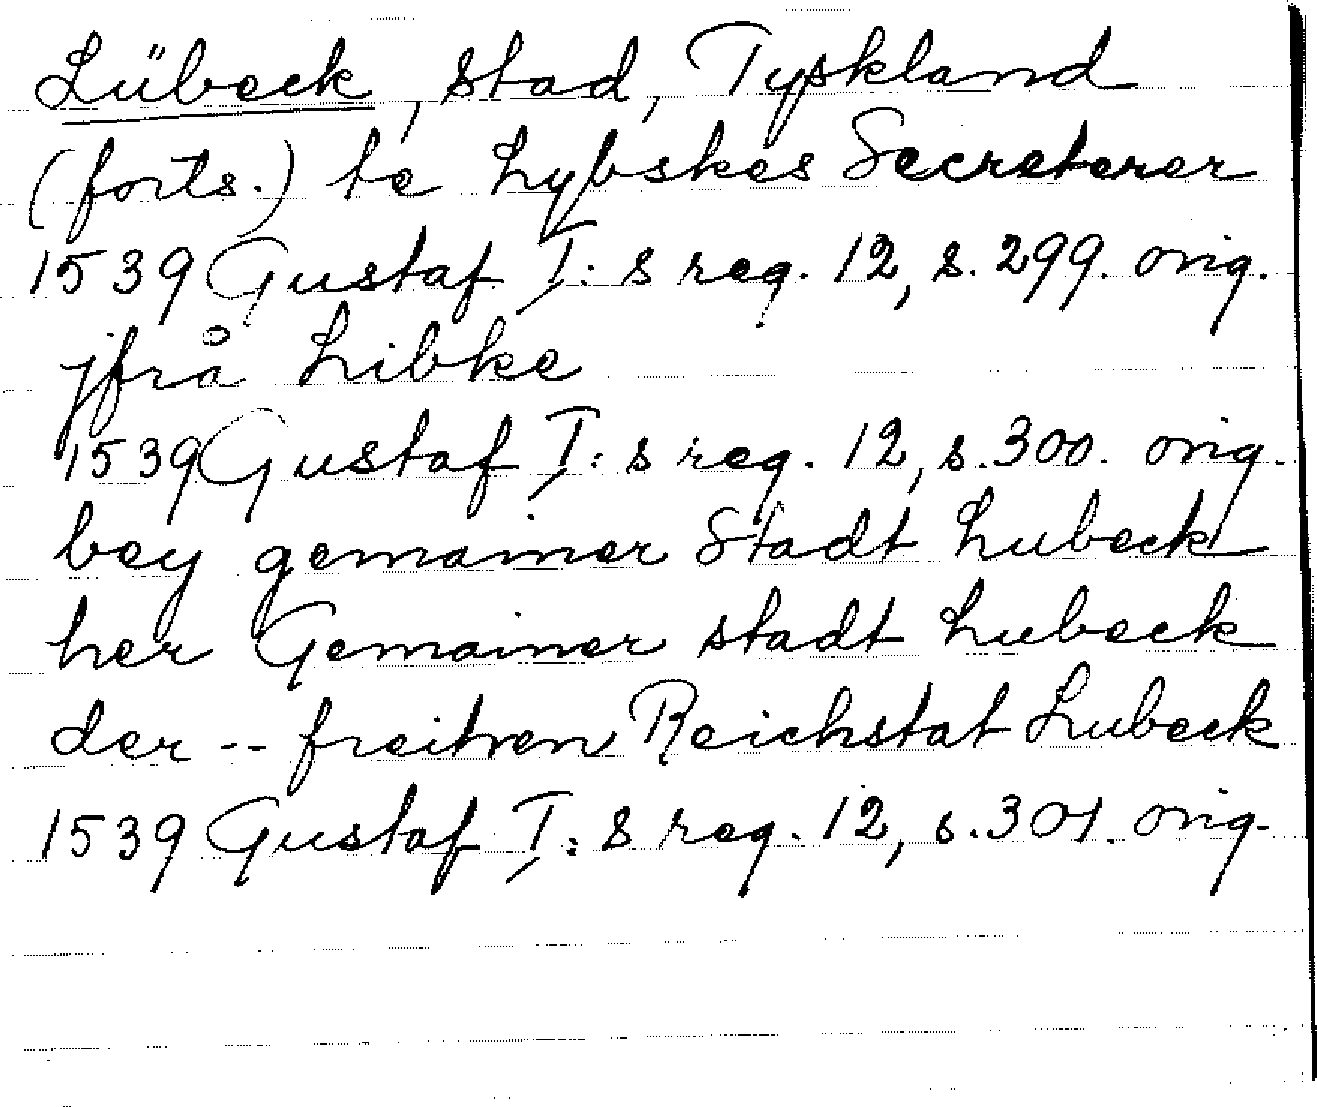 Lübeck, stad, Tyskland
(forts.) te Lybskes Secreterer
1539 Gustaf I:s reg. 12, s. 299. orig.
jfrå Libke
1539 Gustaf I:s reg. 12, s. 300. orig.
bey gemainer Stadt Lubeck
her Gemainer stadt Lubeck
der -- Reichstat Lubeck
1539 Gustaf I:s reg. 12, s. 301. orig.